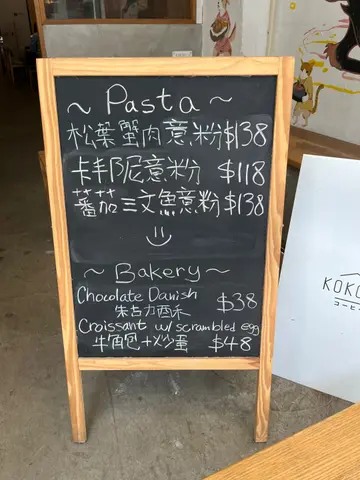 ~ Pasta ~
松葉蟹肉意粉$138
卡邦尼意粉 $118
蕃茄三文魚意粉$138
~ Bakery ~
Chocolate Danish $38
朱古力酥
Croissant w/ scrambled egg
牛角包+炒蛋 $48
KOKO
コーヒ